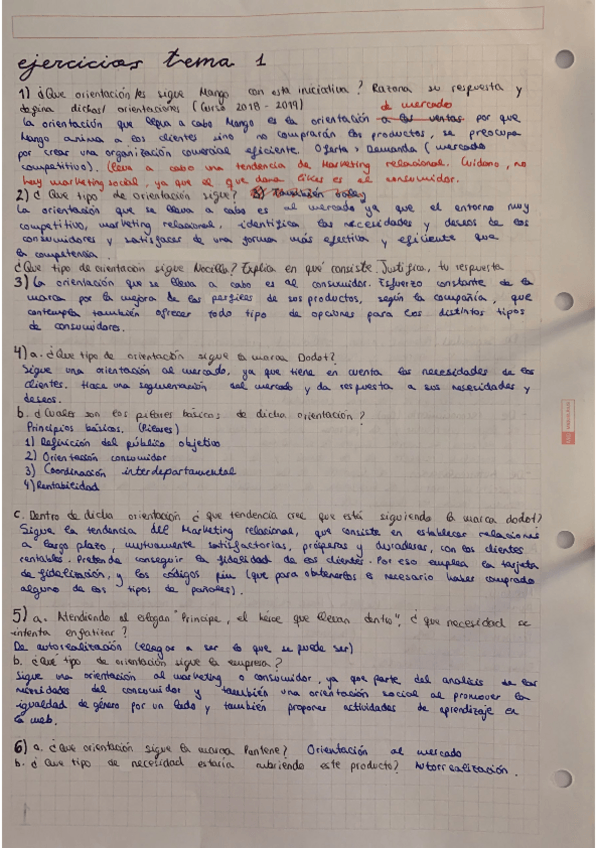 ejercicios tema 1
1) ¿Que orientación/es sigue Mango con esta iniciativa? Razona su respuesta y
dichas orientaciones (Curso 2018 - 2019) de mercado
La orientación que lleva a cabo Mango es la orientación a las ventas por que
Mango anima a los clientes sino no comprarán los productos, se preocupa
por crear una organización comercial eficiente. Oferta > Demanda (mercado
competitivo). (lleva a cabo una tendencia de Marketing relacional. Cuidano, no
hay marketing social, ya que el que dona likes es el consumidor.
2) ¿Que tipo de orientación sigue?
La orientación que se lleva a cabo es al mercado ya que el entorno muy
competitivo, marketing relacional, identifica las necesidades y deseos de los
consumidores y satisfacer de una forma más efectiva y eficiente que
la competencia.
¿Que tipo de orientación sigue Nocilla? Explica en que consiste. Justifica, tu respuesta
3) La orientación que se lleva a cabo es al consumidor. Esfuerzo constante de la
marca por la mejora de los perfiles de sus productos, según la compañía, que
contempla también ofrecer todo tipo de opciones para los distintos tipos
de consumidores.
4) a. ¿Que tipo de orientación sigue la marca Dodot?
Sigue una orientación al mercado, ya que tiene en cuenta las necesidades de los
clientes. Hace una segmentación del mercado y da respuesta a sus necesidades y
deseos.
b. ¿Cuales son los pilares básicos de dicha orientación?
Principios básicos. (Pilares)
1) Definición del público objetivo
2) Orientación consumidor
3) Coordinación interdepartamental
4) Rentabilidad
c. Dentro de dicha orientación ¿que tendencia cree que está siguiendo la marca dodot?
Sigue la tendencia del Marketing relacional, que consiste en establecer relaciones
a largo plazo, mutuamente satisfactorias, prósperas y duraderas, con los clientes
rentables. Pretende conseguir la fidelidad de los clientes. Por eso emplea la tarjeta
de fidelización, y los códigos pin (que para obtenerlos es necesario haber comprado
alguno de los tipos de pañales).
5) a. Atendiendo al eslogan "Principe, el héroe que llevan dentro", ¿que necesidad se
intenta enfatizar?
De autorealización (llegar a ser lo que se puede ser)
b. ¿Que tipo de orientación sigue la empresa?
Sigue una orientación al marketing o consumidor, ya que parte del analisis de las
necesidades del consumidor y también una orientación social al promover la
igualdad de género por un lado y también proponer actividades de aprendizaje en
la web.
6) a. ¿Que orientación sigue la marca Pantene? Orientación al mercado
b. ¿Que tipo de necesidad estaria cubriendo este producto? Autorrealización.